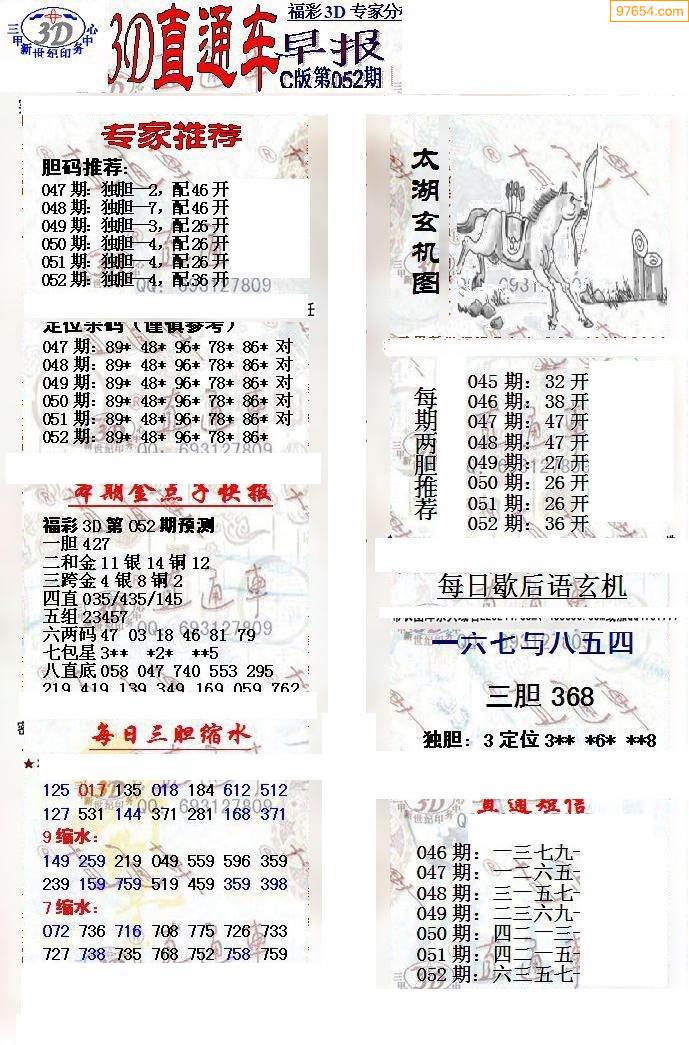 97654.com
三甲 3D 中心
新世纪印务
3D直通车
福彩3D 专家分
早报
C版第052期
专家推荐
胆码推荐:
047 期: 独胆—2, 配46开
048 期: 独胆—7, 配46开
049 期: 独胆—3, 配26开
050 期: 独胆—4, 配26开
051 期: 独胆—4, 配26开
052 期: 独胆—4, 配36开
QQ: 693127809
定位杀码(谨慎参考)
047 期: 89* 48* 96* 78* 86* 对
048 期: 89* 48* 96* 78* 86* 对
049 期: 89* 48* 96* 78* 86* 对
050 期: 89* 48* 96* 78* 86* 对
051 期: 89* 48* 96* 78* 86* 对
052 期: 89* 48* 96* 78* 86*
本期金点子快报
福彩 3D 第 052 期预测
一胆 427
二和金 11 银 14 铜 12
三跨金 4 银 8 铜 2
四直 035/435/145
五组 23457
六两码 47 03 18 46 81 79
七包星 3** *2* **5
八直底 058 047 740 553 295
219 419 139 349 169 059 762
每日三胆缩水
125 017 135 018 184 612 512
127 531 144 371 281 168 371
9 缩水:
149 259 219 049 559 596 359
239 159 759 519 459 359 398
7 缩水:
072 736 716 708 775 726 733
727 738 735 768 752 758 759
太湖玄机图
每期两胆推荐
045 期: 32 开
046 期: 38 开
047 期: 47 开
048 期: 47 开
049 期: 27 开
050 期: 26 开
051 期: 26 开
052 期: 36 开
每日歇后语玄机
一六七与八五四
三胆 368
独胆: 3 定位 3** *6* **8
直通短信
046 期: 一三七九
047 期: 一二六五
048 期: 三一五七
049 期: 二三六九
050 期: 四二一三
051 期: 四二一五
052 期: 六三五七